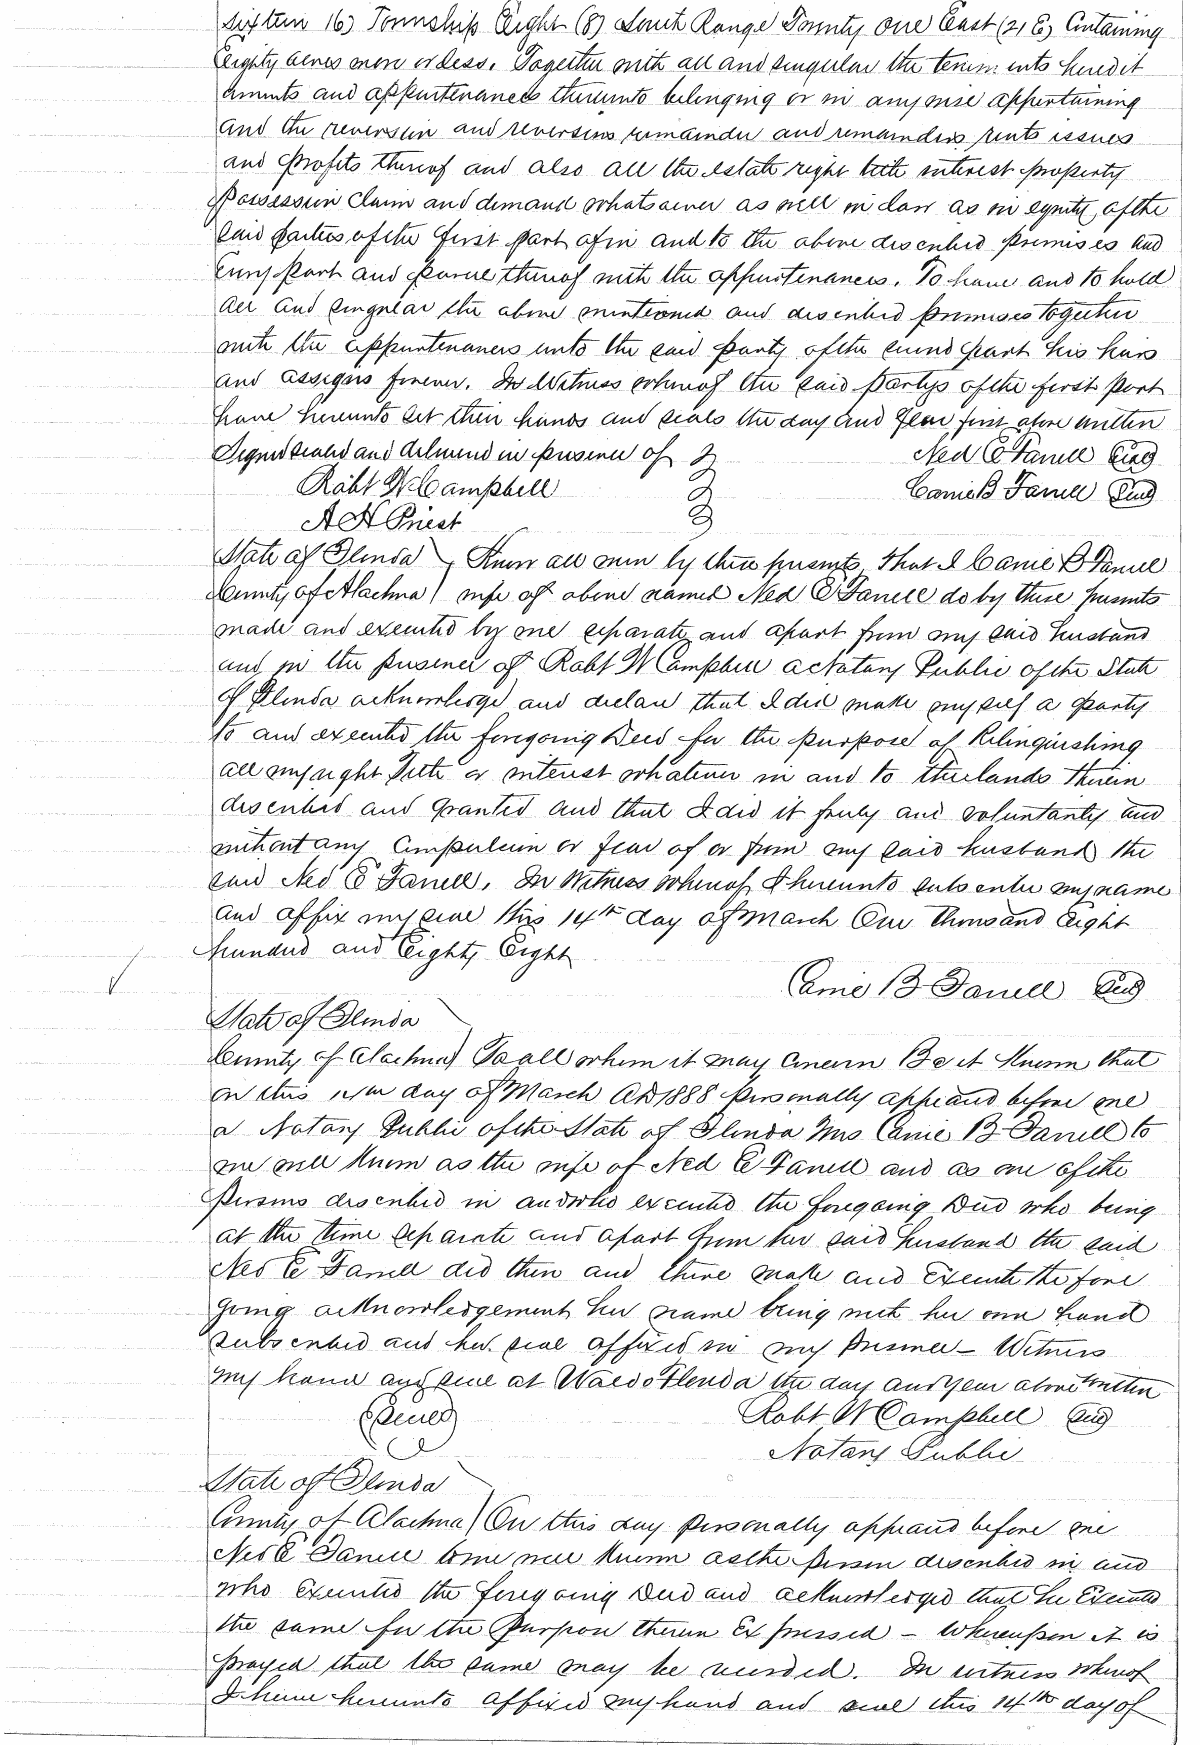 Sixteen 16) Township Eight (8) South Range Twenty one East (21 E) Containing
Eighty acres more or less. Together with all and singular the tenements heredit
aments and appurtenances thereunto belonging or in anywise appertaining
and the reversion and reversions remainder and remainders rents issues
and profits thereof and also all the estate right title interest property
Possession Claim and demand whatsoever as well in law as in equity of the
said parties of the first part of in and to the above described premises and
Every part and parcel thereof with the appurtenances. To have and to hold
all and singular the above mentioned and described premises together
with the appurtenances unto the said party of the second part his heirs
and assigns forever. In Witness whereof the said partys of the first part
have hereunto set their hands and seals the day and year first above written
Signed sealed and delivered in presence of
Ned E Farrell Seal
Robt W Campbell
Carrie B Farrell Seal
A H Priest
State of Florida
Know all men by these presents, That I Carrie B Farrell
County of Alachua wife of above named Ned E Farrell do by these presents
made and executed by me separate and apart from my said husband
and in the presence of Robt W Campbell a Notary Public of the State
of Florida acknowledge and declare that I did make myself a party
to and executed the foregoing Deed for the purpose of Relinquishing
all my right Title or interest whatever in and to the lands therein
described and granted and that I did it freely and voluntarily and
without any Compulsion or fear of or from my said husband the
said Ned E Farrell. In Witness whereof I hereunto subscribe my name
and affix my seal this 14th day of March One Thousand Eight
hundred and Eighty Eight
Carrie B Farrell Seal
State of Florida
County of Alachua) To all whom it may Concern Be it Known that
on this 14th day of March AD 1888 personally appeared before me
a Notary Public of the State of Florida Mrs Carrie B Farrell to
me well Known as the wife of Ned E Farrell and as one of the
Persons described in and who executed the foregoing Deed who being
at the time separate and apart from her said husband the said
Ned E Farrell did then and there make and Execute the fore
going acknowledgement her name being with her own hand
subscribed and her seal affixed in my presence - Witness
my hand and seal at Waldo Florida the day and year above written
(Seal)
Robt W Campbell Seal
Notary Public
State of Florida
County of Alachua) On this day personally appeared before me
Ned E Farrell to me well Known as the person described in and
who executed the foregoing Deed and acknowledged that he Executed
the same for the Purpose therein Expressed - Whereupon it is
prayed that the same may be recorded. In witness whereof
I have hereunto affixed my hand and seal this 14th day of